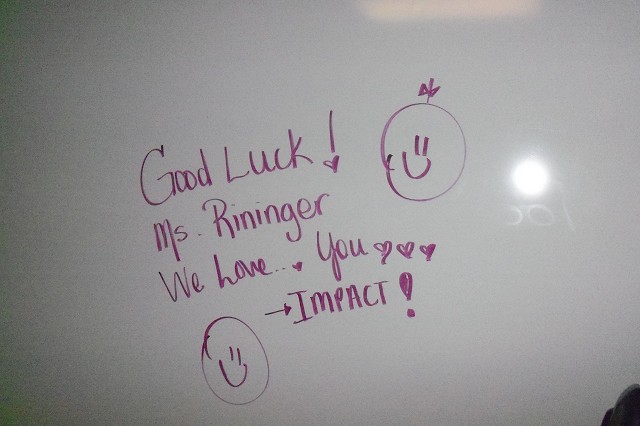 Good Luck!
Ms. Rininger
We Love... You
→ IMPACT!